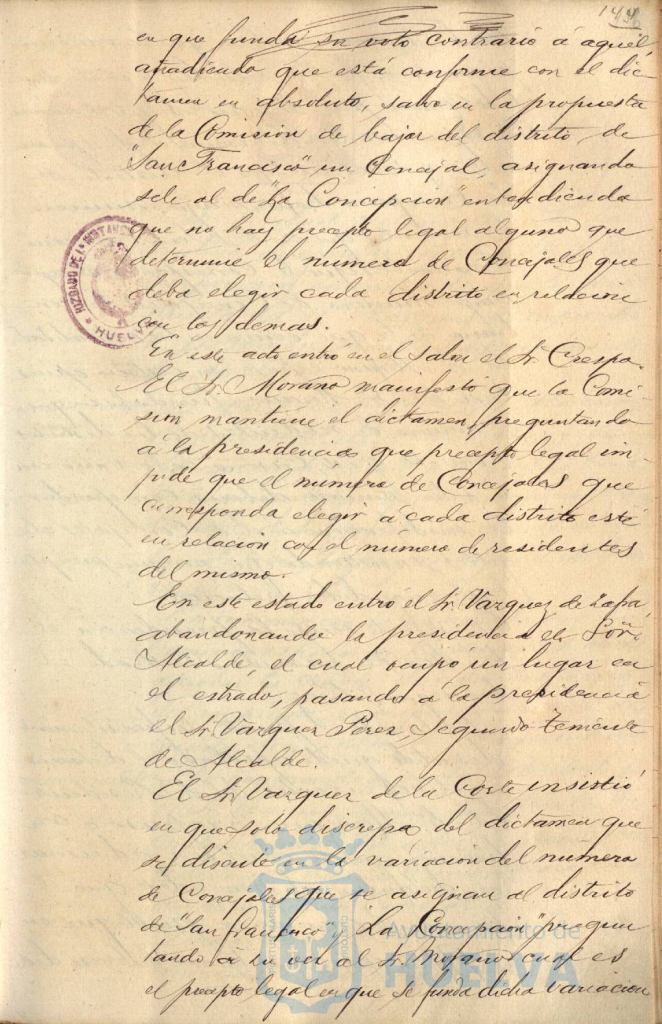 en que funda su voto contrario á aquel,
añadiendo que está conforme con el dic-
tamen en absoluto, salvo en la propuesta
de la Comision de bajar del distrito de
"San Francisco" un Concejal, asignando
sele al de "La Concepcion" entendiendo
que no hay precepto legal alguno que
determine el número de Concejales que
deba elegir cada distrito en relacion
con los demas.
En este acto entró en el salon el Sr. Crespo.
El Sr. Morano manifestó que la Comi-
sion mantiene el dictamen, preguntando
á la presidencia que precepto legal im-
pide que el número de Concejales que
corresponda elegir á cada distrito esté
en relacion con el número de residentes
del mismo.
En este estado entro el Sr. Vazquez de Zapa,
abandonando la presidencia el Señor
Alcalde, el cual ocupó un lugar en
el estrado, pasando á la presidencia
el Sr. Vazquez Perez, segundo teniente
de Alcalde.
El Sr. Vazquez de la Corte insistió
en que solo discrepa del dictamen que
se discute en la variacion del número
de Concejales que se asignan al distrito
de "San Francisco" y "La Concepcion" pregun
tando á su vez al Sr. Morano cual es
el precepto legal en que se funda dicha variacion
JUZGADO DE 1ª INSTANCIA
HUELVA
Ayuntamiento de
HUELVA